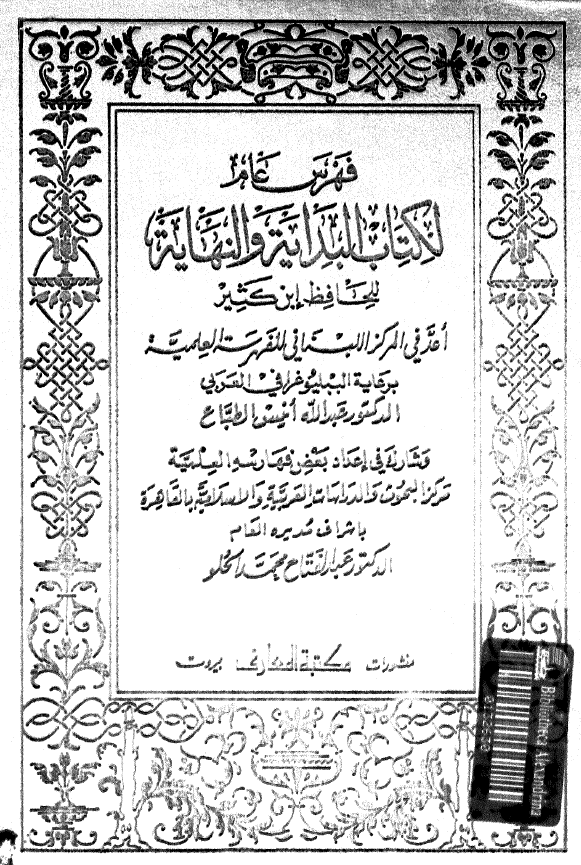 فهرس عام
لكتاب البداية والنهاية
للحافظ ابن كثير
أعد في المركز اللبناني للفهرسة العلمية
برعاية الببليوغرافي العربي
الدكتور عبدالله أنيس الطباع
وشارك في إعداد بعض فهارسه العلمية
مركز البحوث والدراسات العربية والاسلامية بالقاهرة
باشراف مديره العام
الدكتور عبدالفتاح محمد الحلو
منشورات مكتبة المعارف بيروت
Bibliotheca Alexandrina